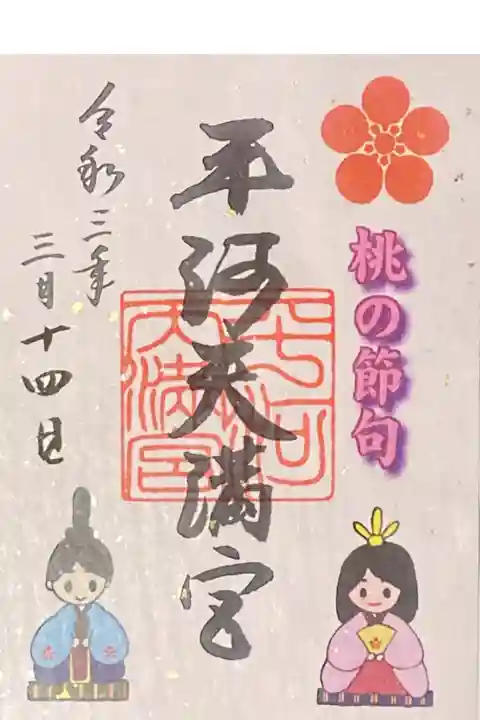 桃の節句
平河天満宮
令和三年
三月十四日
平河
天満宮